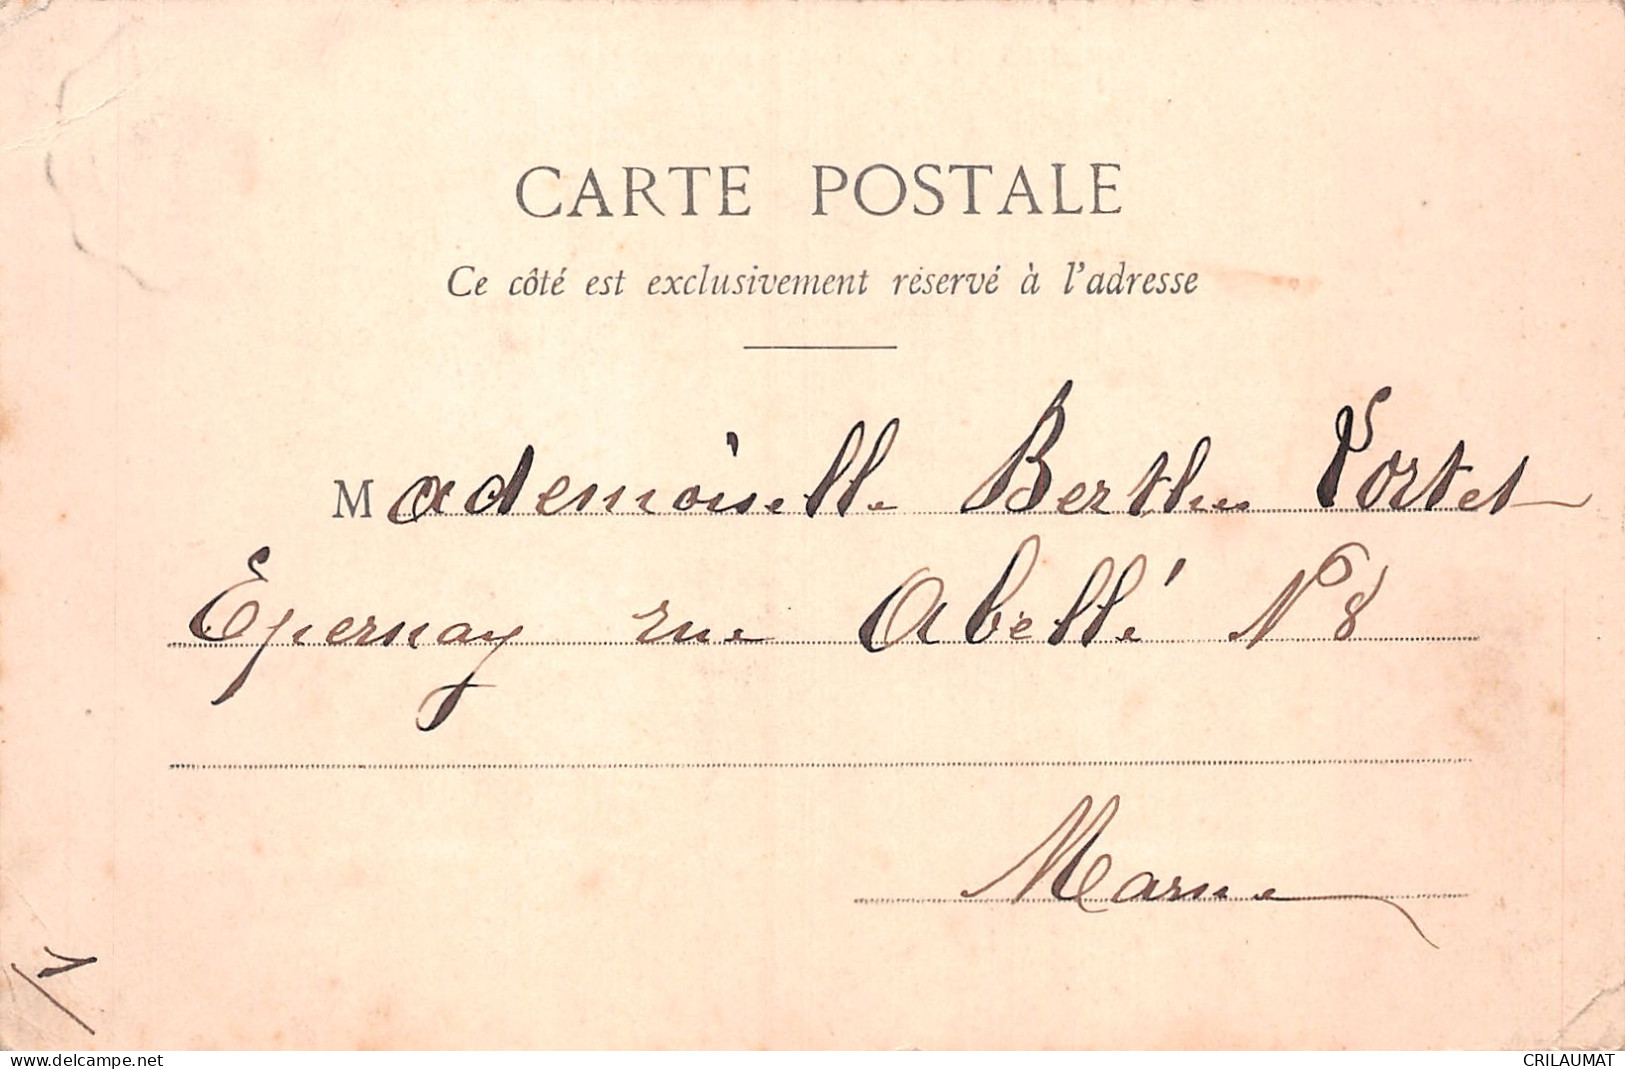 CARTE POSTALE
Ce côté est exclusivement réservé à l'adresse
Mademoiselle Berthe Portet
Epernay rue Abellé N° 8
Marne
1
www.delcampe.net CRILAUMAT